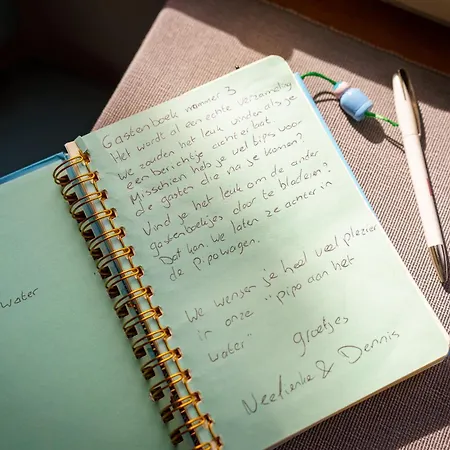 water
Gastenboek nummer 3
Het wordt al een echte verzameling
We zouden het leuk vinden als je
een berichtje achterlaat.
Misschien heb je wel tips voor
de gasten die na je komen?
Vind je het leuk om de andere
gastenboekjes door te bladeren?
Dat kan. We laten ze achter in
de pipowagen.
We wensen je heel veel plezier
in onze "pipo aan het
water"
groetjes
Neelienke & Dennis